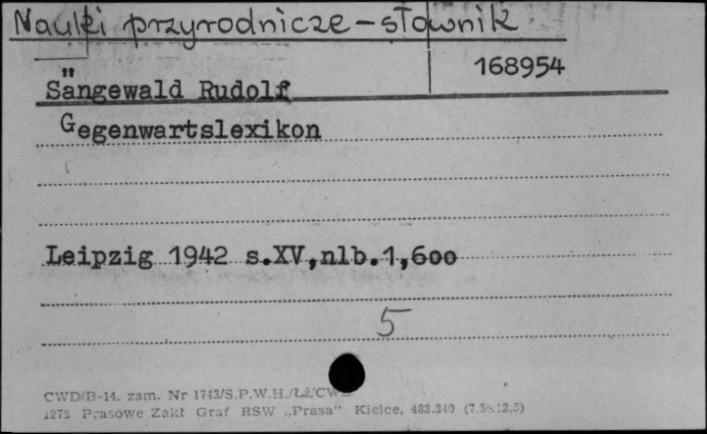 Nauki przyrodnicze – słownik
168954
Sängewald Rudolf
Gegenwartslexikon
Leipzig 1942 s.XV,nlb.1,600
5
CWD/B-14. zam. Nr 1743/S.P.W.H./ZŻ/CWD
1272 Prasowe Zakł Graf RSW „Prasa" Kielce, 483.340 (7,5×12,5)